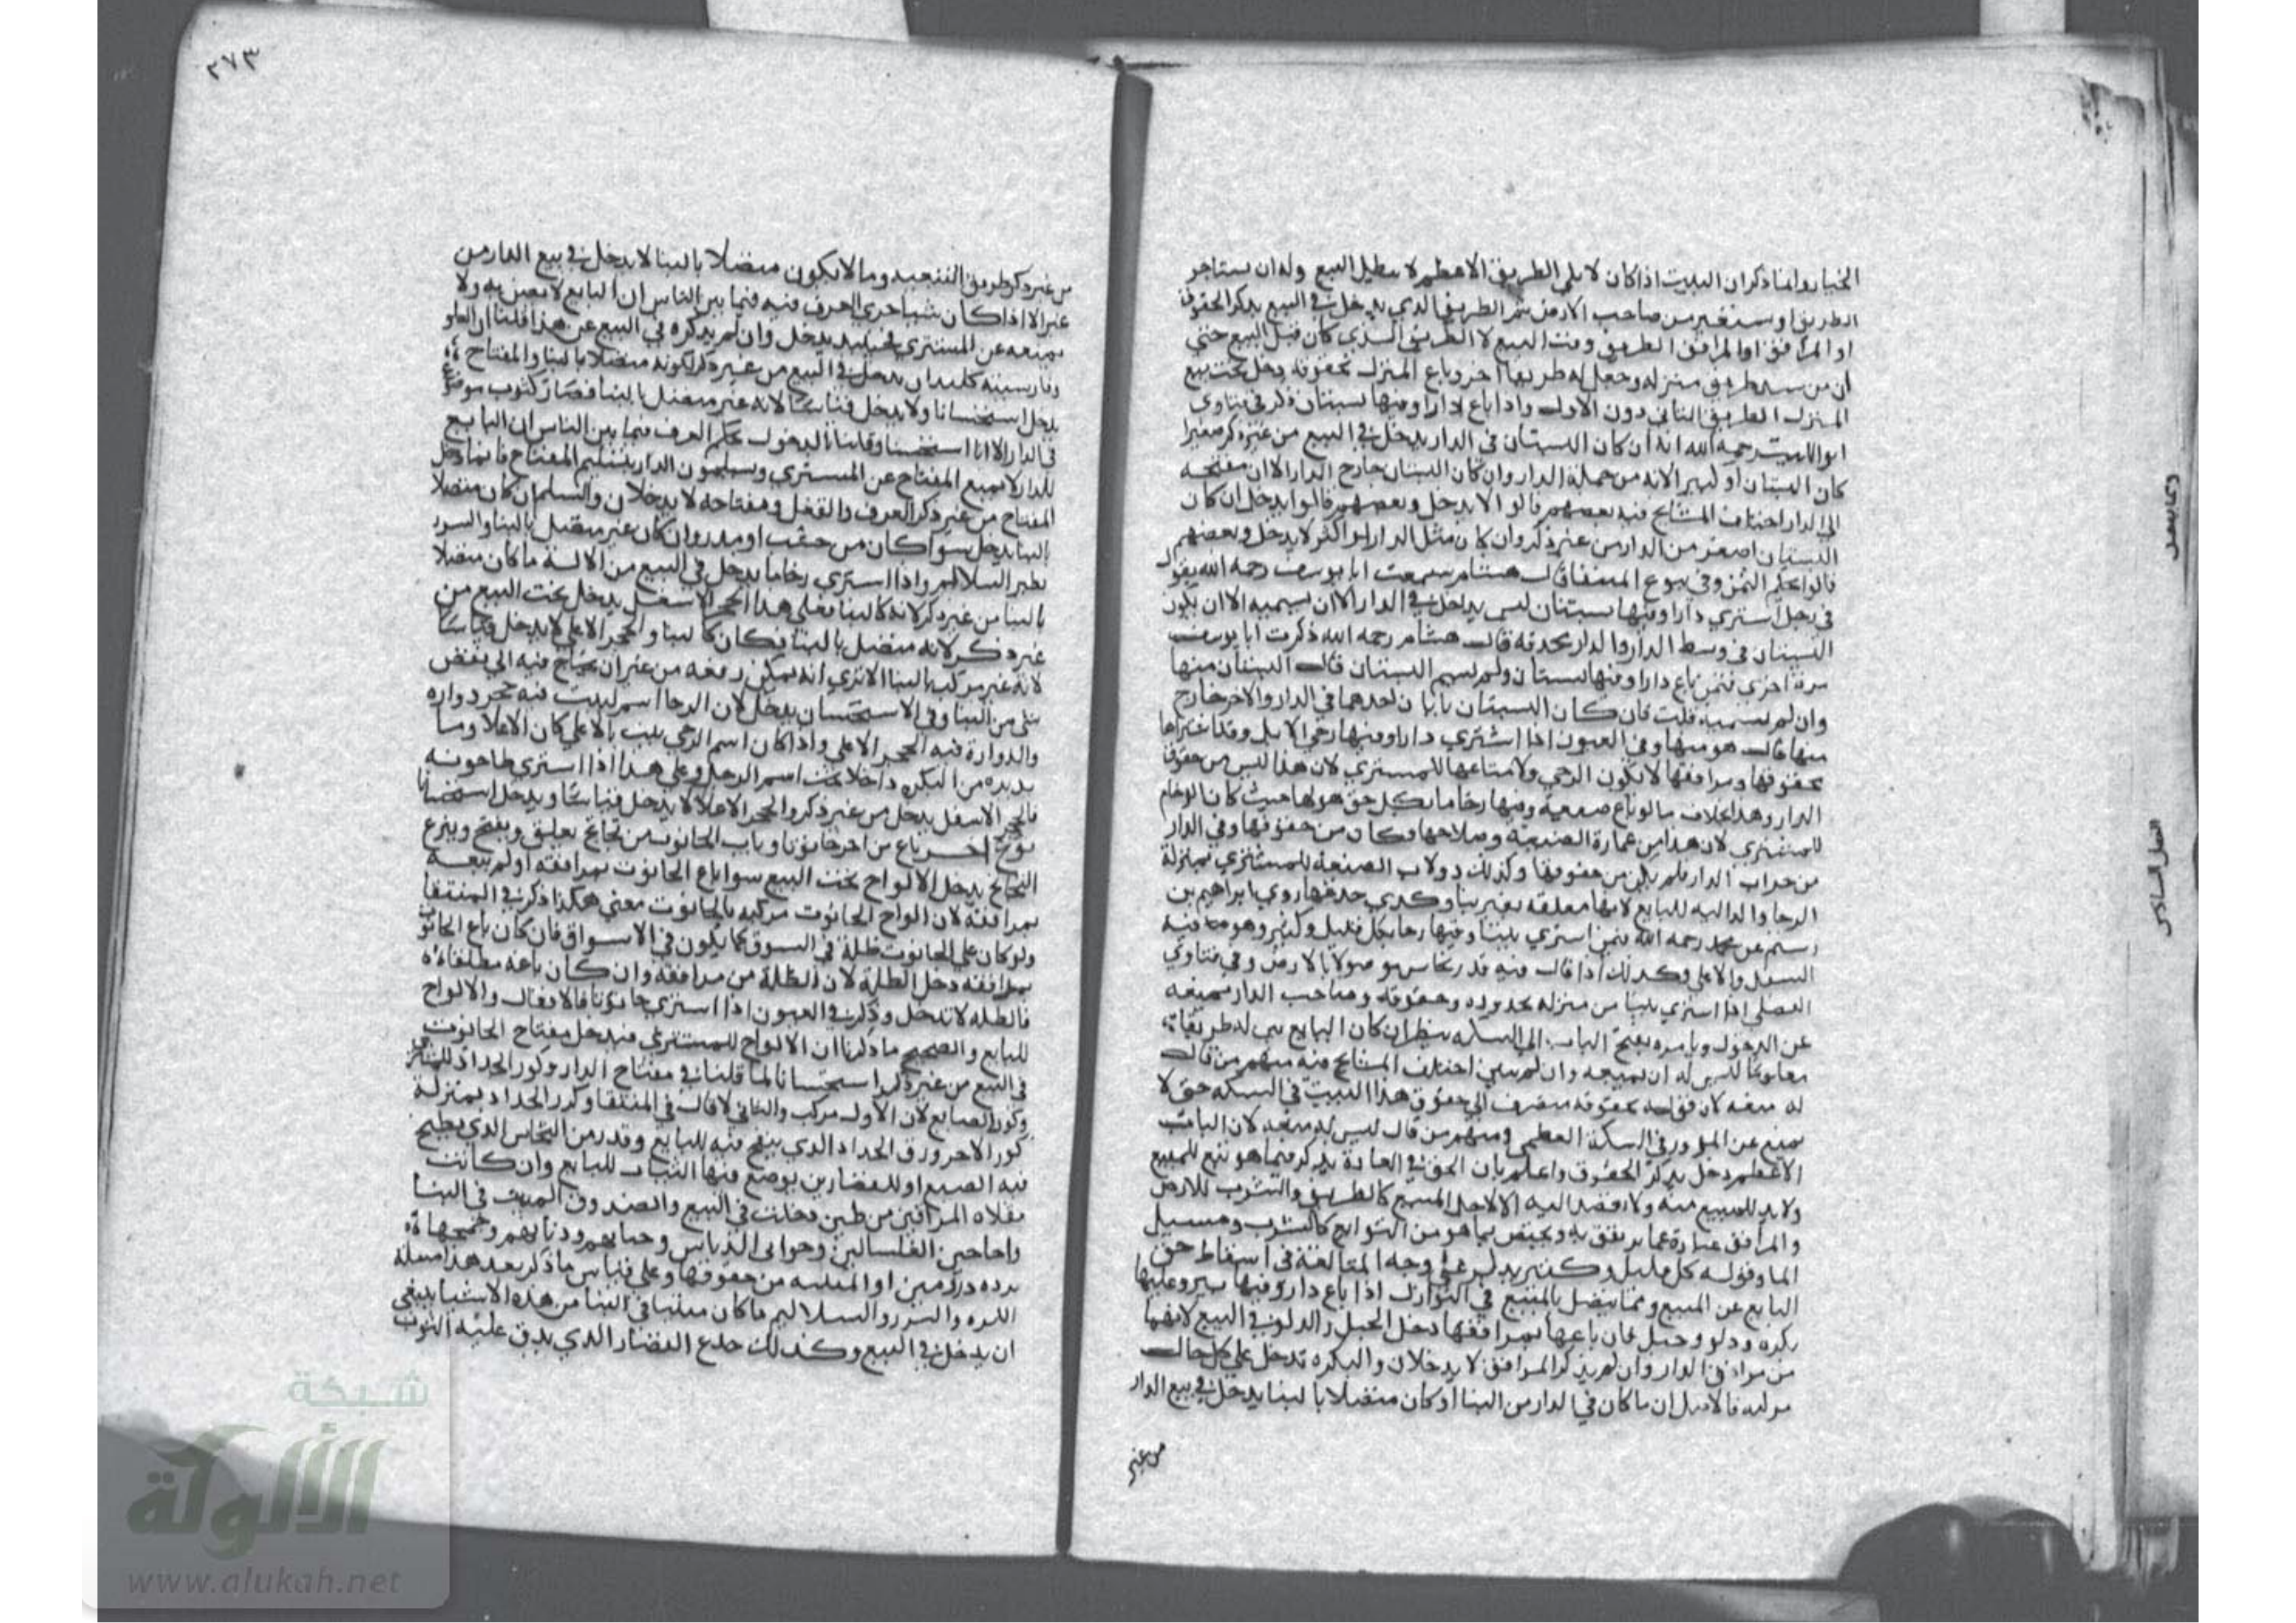 الخيار وانما ذكر ان البيت اذا كان لا يلي الطريق الاعظم لا يبطل البيع وله ان يستاجر
الطريق او يستعير من صاحب الارض ثم الطريق الذي يدخل في البيع بذكر الحقوق
او المرافق الطريق وقت البيع لا الطريق الذي كان قبل البيع حتي
ان من سد طريق منزله وجعل له طريقا اخر وباع المنزل بحقوقه دخل تحت بيع
المنزل الطريق الثاني دون الاول واذا باع دارا وفيها بستان ذكر في فتاوي
ابو الليث رحمه الله انه ان كان البستان في الدار يدخل في البيع من غير ذكر صغيرا
كان البستان او كبيرا لانه من جملة الدار وان كان البستان خارج الدار الا ان مفتحه
الي الدار اختلف المشايخ فيه بعضهم قالوا لا يدخل وبعضهم قالوا يدخل ان كان
البستان اصغر من الدار من غير ذكر وان كان مثل الدار او اكثر لا يدخل وبعضهم
قالوا يحكم الثمن وفي بيوع المنتقا قال هشام سمعت ابا يوسف رحمه الله يقول
في رجل اشتري دارا وفيها بستان ليس يدخل في الدار الا ان يسميه الا ان يكون
البستان في وسط الدار والدار محدقه قال هشام رحمه الله ذكرت ابا يوسف
مرة اخري فيمن باع دارا وفيها بستان ولم يسم البستان قال البستان منها
وان لم يسميه قلت فان كان البستان بابان احدهما في الدار والاخر خارج
منها قال هو منها وفي العيون اذا اشتري دارا وفيها رحي الابل وقد اشتراها
بحقوقها ومرافقها لا يكون الرحي ولا متاعها للمشتري لان هذا ليس من حقوق
الدار وهذا بخلاف ما لو باع ضيعة وفيها رحا ما بكل حق هو لها حيث كان الرحا
للمشتري لان هذا من عمارة الضيعة وصلاحها وكان من حقوقها وفي الدار
من خراب الدار فلم يكن من حقوقها وكذلك دولاب الضيعة للمشتري بمنزلة
الرحا والداليه للبايع لانها معلقه بغير بنا وكذي جذعها روي ابراهيم بن
رستم عن محمد رحمه الله فيمن اشتري بيتا وفيها رحا بكل قليل وكثير وهو فيه
السفل والاعلي وكذلك اذا قال فيه قدر نحاس موصولا بالارض وفي فتاوي
الفضلي اذا اشتري بيتا من منزله بحدوده وحقوقه وصاحب الدار يمنعه
عن الدخول ويامره بفتح الباب الي السكه ينظر ان كان البايع بين له طريقا
معلوما ليس له ان يمنعه وان لم يبين اختلف المشايخ فيه منهم من قال
له منعه لان قوله بحقوقه منصرف الي حقوق هذا البيت في السكه حتي لا
يمنع عن المرور في السكة العظمي ومنهم من قال ليس له منعه لان الباب
الاعظم دخل بذكر الحقوق واعلم بان الحق في العادة يذكر فيما هو تبع للمبيع
ولا بد للمبيع منه ولا يقصد اليه الا لاجل المبيع كالطريق والشرب للارض
والمرافق عبارة عما يرتفق به ويختص بما هو من التوابع كالشرب ومسيل
الما وقوله كل قليل وكثير يذكر علي وجه المبالغة في اسقاط حق
البايع عن المبيع ومما يتصل بالمبيع في النوازل اذا باع دارا وفيها بير وعليها
بكره ودلو وحبل فان باعها بمرافقها دخل الحبل والدلو في البيع لانهما
من مرافق الدار وان لم يذكر المرافق لا يدخلان والبكره تدخل علي كل حال
فالاصل ان ما كان في الدار من البنا او كان متصلا بالبنا يدخل في بيع الدار
من غير
٢٧٣
من غير ذكر طريق التبعيه وما لا يكون متصلا بالبنا لا يدخل في بيع الدار من
غير الا اذا كان شيا جري العرف فيه فيما بين الناس ان البايع لا يضن به ولا
يمنعه عن المشتري فحينيذ يدخل وان لم يذكره في البيع عن هذا قلنا ان الغلق
وفارسيته كليدان يدخل في البيع من غير ذكر لكونه متصلا بالبنا والمفتاح
يدخل استحسانا ولا يدخل قياسا لانه غير متصل بالبنا فصار كثوب موضوع
في الدار الا انا استحسنا وقلنا بالدخول بحكم العرف فيما بين الناس ان البايع
للدار لا يمنع المفتاح عن المشتري ويسلمون الدار بتسليم المفتاح فانما دخل
المفتاح من غير ذكر العرف والقفل ومفتاحه لا يدخلان والسلم ان كان متصلا
بالبنا يدخل سوا كان من خشب او مدر وان كان غير متصل بالبنا والسرر
نظير السلاليم واذا اشتري رحا ما يدخل في البيع من الالة ما كان متصلا
بالبنا من غير ذكر لانه كالبنا فعلي هذا الحجر الاسفل يدخل تحت البيع من
غير ذكر لانه متصل بالبنا فكان كالبنا والحجر الاعلي لا يدخل قياسا
لانه غير مركب بالبنا الا تري انه يمكن رفعه من غير ان يحتاج فيه الي نقض
شي من البنا وفي الاستحسان يدخل لان الرحا اسم لبيت فيه حجر دواره
والدوارة فيه الحجر الاعلي واذا كان اسم الرحي يثبت بالاعلي كان الاعلا وما
يديره من البكره داخلا تحت اسم الرحا وعلي هذا اذا اشتري طاحونه
فالحجر الاسفل يدخل من غير ذكر والحجر الاعلا لا يدخل قياسا ويدخل استحسانا
نوع اخر باع من اخر حانوتا وباب الحانوت من تخاتج يعلق ويفتح وينزع
التخاتج يدخل الالواح تحت البيع سوا باع الحانوت بمرافقه او لم يبعه
بمرافقه لان الواح الحانوت مركبه بالحانوت معني هكذا ذكر في المنتقا
ولو كان علي الحانوت ظلة في السوق كما يكون في الاسواق فان كان باع الحانوت
بمرافقه دخل الظلة لان الظلة من مرافقه وان كان باعه مطلقا
فالظله لا تدخل وذكر في العيون اذا اشتري حانوتا فالاقفال والالواح
للبايع والصحيح ما ذكرنا ان الالواح للمشتري فيدخل مفتاح الحانوت
في البيع من غير ذكر استحسانا لما قلنا في مفتاح الدار وكور الحداد للمشتري
وكور الصايغ لان الاول مركب والثاني لا قال في المنتقا وكور الحداد بمنزلة
كور الاجر وزق الحداد الذي ينفخ فيه للبايع وقدر من النحاس الذي يطبخ
فيه الصبغ او للقصارين يوضع فيها الثياب للبايع وان كانت
مقلاه السواقين من طين دخلت في البيع والصندوق المثبت في البنا
واجاجين الغسالين وخوابي الدباس وحبابهم ودنانهم
من حقوقها وعلي قياس ما ذكر بعد هذا مسله
والسرر والسلاليم ما كان مثبتا في البنا من هذه الاشيا ينبغي
ان يدخل في البيع وكذلك جذع القصار الذي يدق عليه الثوب
شبكة
الألوكة
www.alukah.net